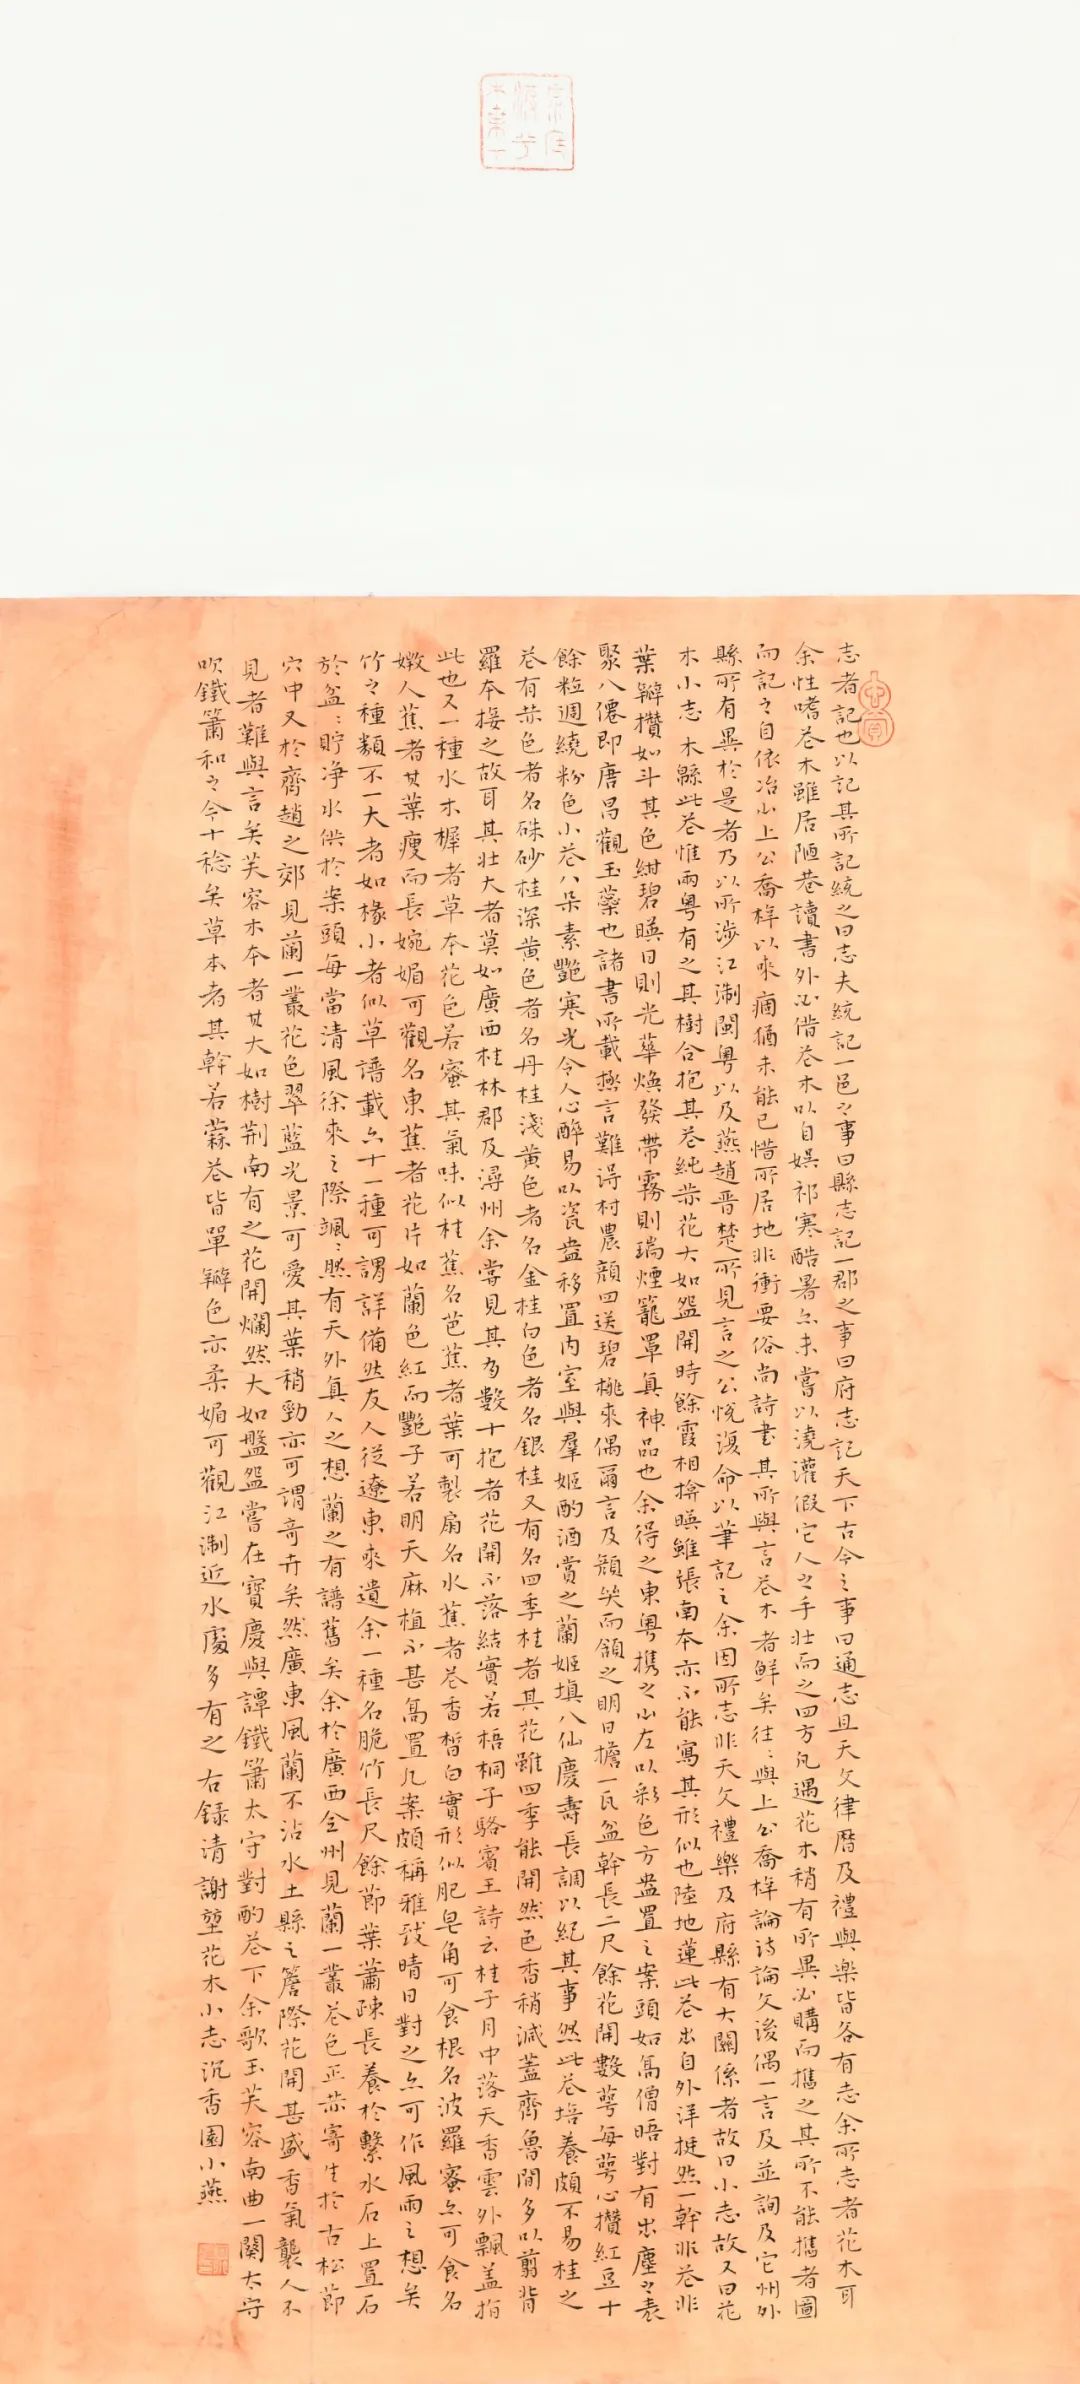 志者記也以記其所記統之曰志夫統記一邑之事曰縣志記一郡之事曰府志記天下古今之事曰通志且天文律曆及禮與樂皆各有志余所志者花木耳
余性嗜花木雖居陋巷讀書外必借花木以自娛祁寒酷暑亦未嘗以澆灌假它人之手壯而之四方凡遇花木稍有所異必購而攜之其所不能攜者圖
而記之自依冶山上公喬梓以來痼猶未能已惜所居地非衝要俗尚詩書其所與言花木者鮮矣往〻與上公喬梓論詩論文後偶一言及並詢及它州外
縣所有異於是者乃以所涉江淛閩粵以及燕趙晉楚所見言之公悅復命以筆記之余因所志非天文禮樂及府縣有大關係者故曰小志故又曰花
木小志 木緜此花惟兩粵有之其樹合抱其花純赤花大如盌開時餘霞相揜暎雖張南本亦不能寫其形似也陸地蓮此花出自外洋挺然一幹非花非
葉瓣攢如斗其色紺碧暎日則光華煥發帶霧則瑞煙籠罩真神品也余得之東粵攜之山左以彩色方盎置之案頭如高僧晤對有出塵之表
聚八僊即唐昌觀玉蘂也諸書所載撚言難得村農顏四送碧桃來偶爾言及頮笑而頷之明日擔一瓦盆幹長二尺餘花開數萼每萼心攢紅豆十
餘粒週繞粉色小花八朵素艷寒光令人心醉易以瓷盎移置內室與羣姬酌酒賞之蘭姬填八仙慶壽長調以紀其事然此花培養頗不易桂之
花有赤色者名硃砂桂深黃色者名丹桂淺黃色者名金桂白色者名銀桂又有名四季桂者其花雖四季能開然色香稍減蓋齊魯間多以翦背
羅本接之故耳其壯大者莫如廣西桂林郡及潯州余嘗見其為數十抱者花開不落結實若梧桐子駱賓王詩云桂子月中落天香雲外飄蓋指
此也又一種水木樨者草本花色若蜜其氣味似桂蕉名芭蕉者葉可製扇名水蕉者花香皙白實形似肥皂角可食根名波羅蜜亦可食名
媺人蕉者其葉瘦而長婉媚可觀名東蕉者花片如蘭色紅而艷子若明天麻植不甚高置几案頗稱雅致晴日對之亦可作風雨之想矣
竹之種類不一大者如椽小者似草譜載六十一種可謂詳備然友人從遼東來遺余一種名脆竹長尺餘節葉蕭疎長養於繫水石上置石
於盆〻貯净水供於案頭每當清風徐來之際颯〻然有天外真人之想蘭之有譜舊矣余於廣西全州見蘭一叢花色正赤寄生於古松節
穴中又於齊趙之郊見蘭一叢花色翠藍光景可愛其葉稍勁亦可謂奇卉矣然廣東風蘭不沾水土縣之簷際花開甚盛香氣襲人不
見者難與言矣芙容木本者其大如樹荆南有之花開爛然大如盤盌嘗在寶慶與譚鐵簫太守對酌花下余歌玉芙容南曲一闋太守
吹鐵簫和之今十稔矣草本者其幹若蒜花皆單瓣色亦柔媚可觀江淛近水處多有之右錄清謝堃花木小志沉香園小燕